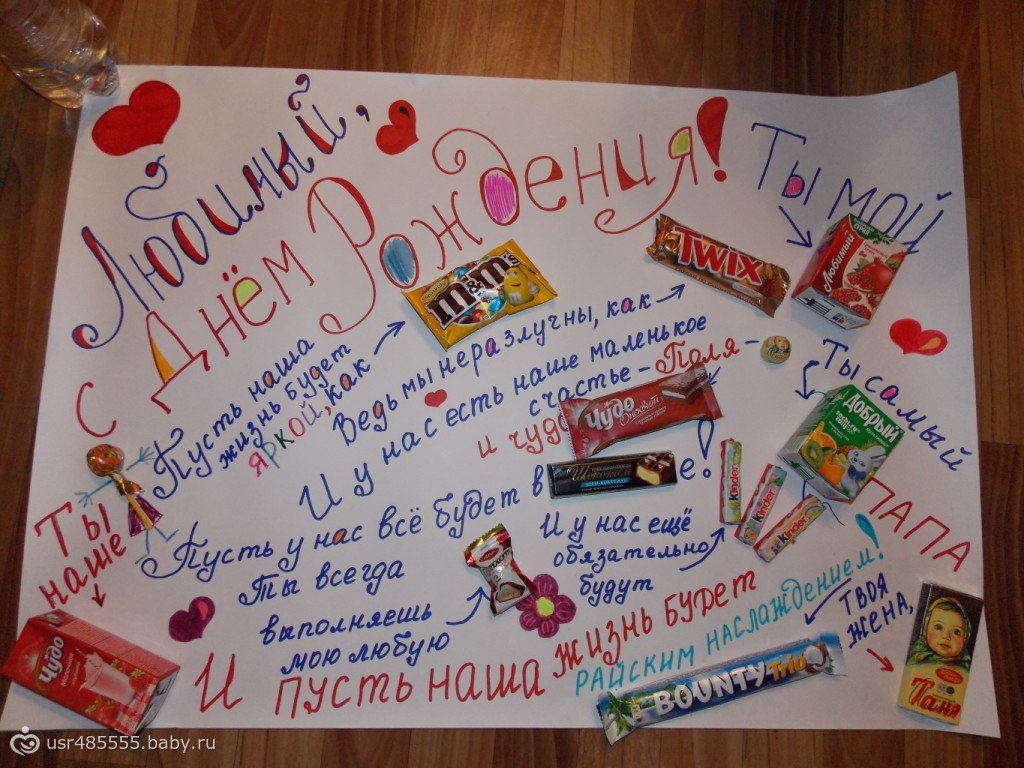 Любимый,
С Днём Рождения!
Ты мой
Любимый
TWIX
m&m's
Пусть наша
жизнь будет
яркой, как
Ведь мы неразлучны, как
И у нас есть наше маленькое
счастье - Поля -
и чудо
Чудо
Ты самый
Добрый
ПАПА
Пусть у нас всё будет в
Шокотем
е!
Kinder
Kinder
Kinder
И у нас ещё
обязательно
будут
Ты всегда
выполняешь
мою любую
Ты
наше
Чудо
И пусть наша жизнь будет
райским наслаждением!
BOUNTY Trio
Твоя
жена,
usr485555.baby.ru